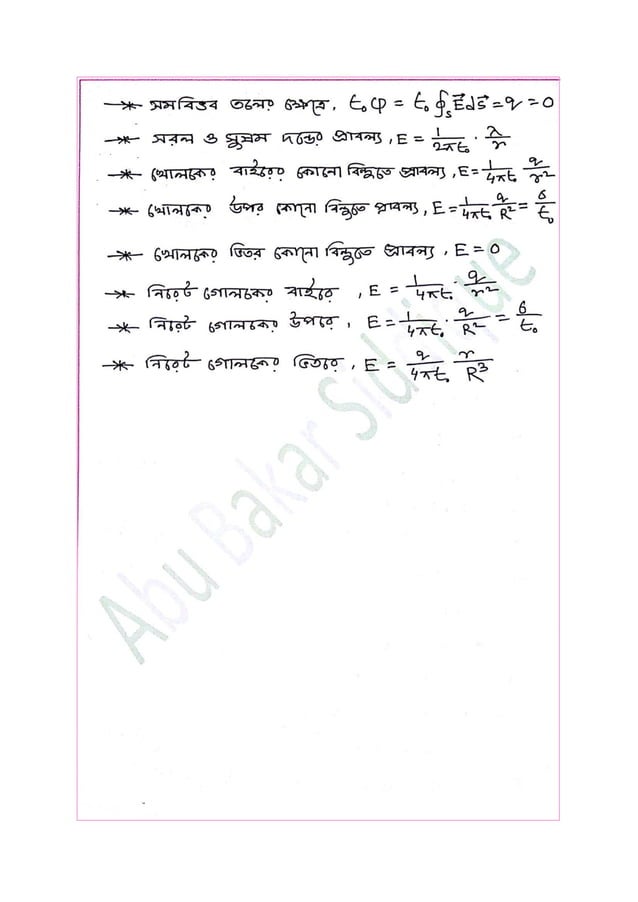 * সমবিভব তলের ক্ষেত্রে, ϵ₀φ = ϵ₀ ∮ₛ E⃗ ds⃗ = q = 0
* সরল ও সুষম দন্ডের প্রাবল্য, E = 1/2πϵ₀ · λ/r
* গোলকের বাইরের কোনো বিন্দুতে প্রাবল্য, E = 1/4πϵ₀ q/r²
* গোলকের উপর কোনো বিন্দুতে প্রাবল্য, E = 1/4πϵ₀ q/R² = σ/ϵ₀
* গোলকের ভিতর কোনো বিন্দুতে প্রাবল্য, E = 0
* নিরেট গোলকের বাইরে, E = 1/4πϵ₀ · q/r²
* নিরেট গোলকের উপরে, E = 1/4πϵ₀ · q/R² = σ/ϵ₀
* নিরেট গোলকের ভিতরে, E = q/4πϵ₀ r/R³
Abu Bakar Siddique